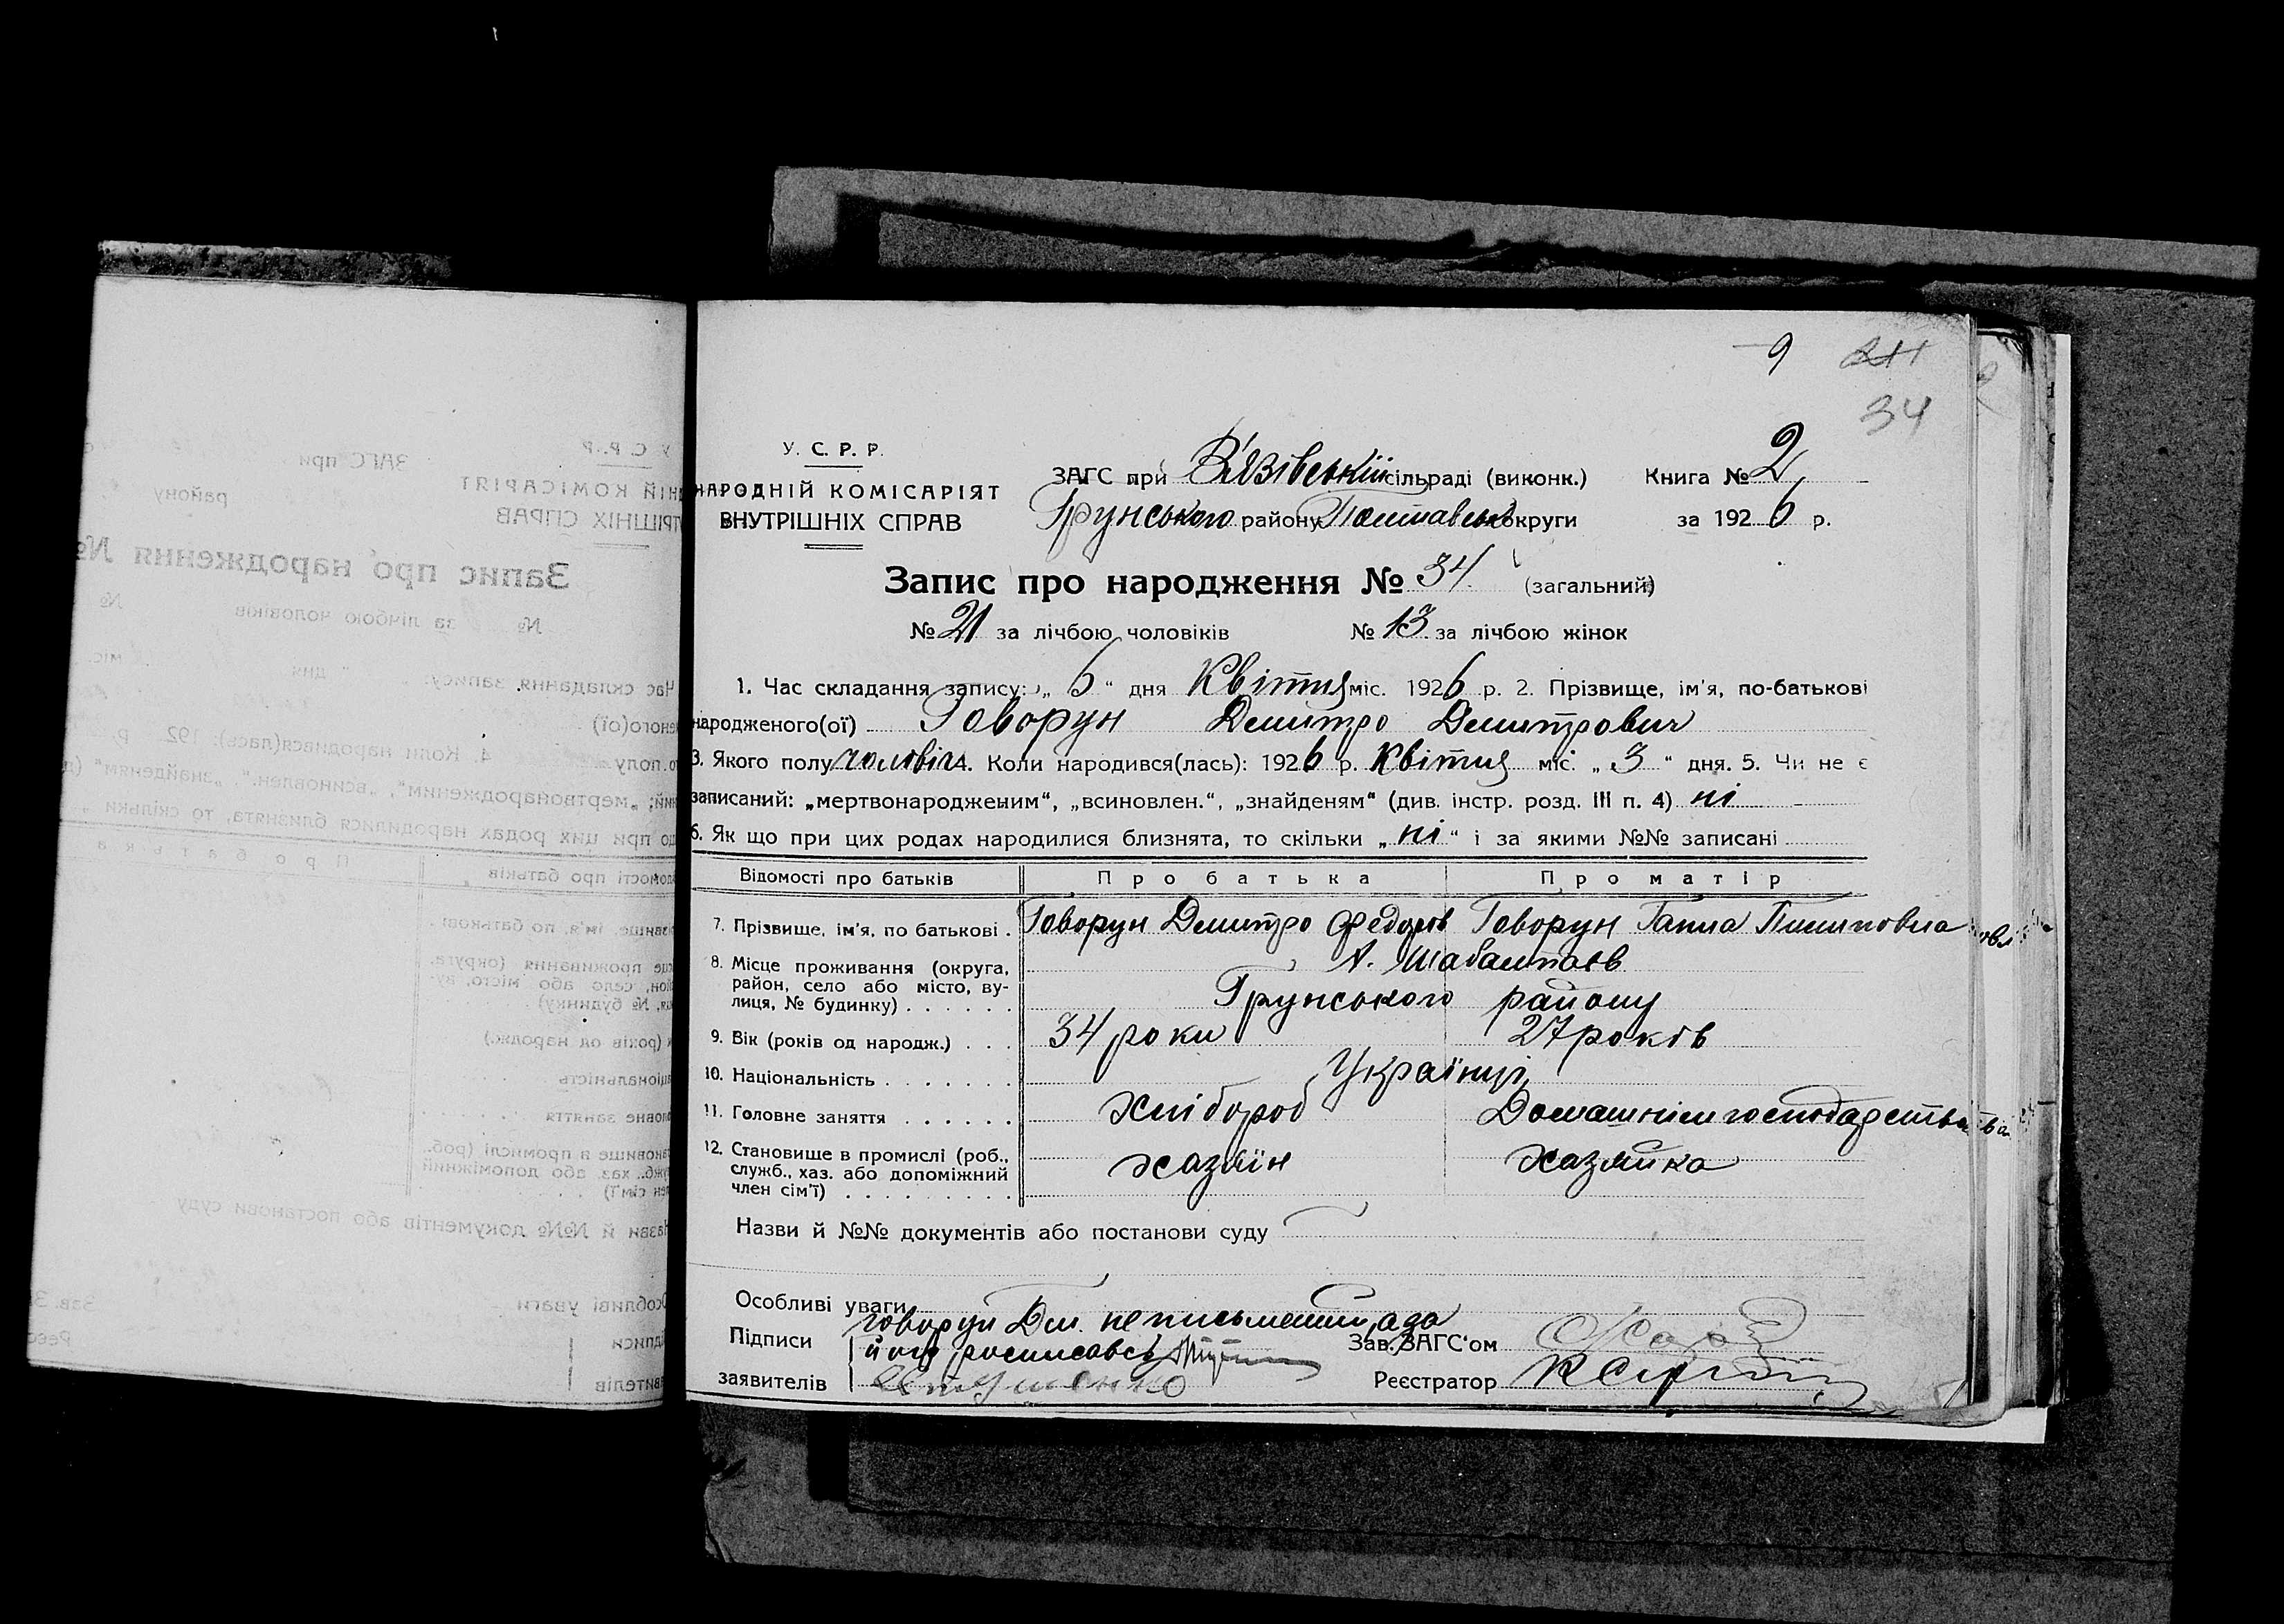 9
34
У. С. Р. Р.
НАРОДНІЙ КОМІСАРІЯТ
ВНУТРІШНІХ СПРАВ
ЗАГС при В'язівській сільраді (виконк.) Книга № 2
Грунського району Полтавськ округи за 1926 р.
Запис про народження № 34 (загальний)
№ 21 за лічбою чоловіків № 13 за лічбою жінок
1. Час складання запису: „ 6 “ дня Квітня міс. 1926 р. 2. Прізвище, ім'я, по-батькові
народженого(ої) Говорун Дмитро Дмитрович
3. Якого полу чоловіч 4. Коли народився(лась): 1926 р. Квітня міс. „ 3 “ дня. 5. Чи не є
записаний: „мертвонародженим“, „всиновлен.“, „знайденям“ (див. інстр. розд. III п. 4) ні
6. Як що при цих родах народилися близнята, то скільки „ ні “ і за якими №№ записані
Відомості про батьків Про батька Про матір
7. Прізвище, ім'я, по батькові . Говорун Дмитро Федоров Говорун Ганна Пилиповна
8. Місце проживання (округа, район, село або місто, вулиця, № будинку) . . . . . .
Грунського району
9. Вік (років од народж.) . . . 34 роки 27 років
10. Національність . . . . . . . Українці
11. Головне заняття . . . . . . Хлібороб Домашнім господарством
12. Становище в промислі (роб., служб., хаз. або допоміжний член сім'ї) . . . . . . . . . хазяїн хазяйка
Назви й №№ документів або постанови суду
Особливі уваги
Говорун Дм. неписьменний, а за
Підписи його росписавсь Зав. ЗАГС'ом
заявителів Реєстратор